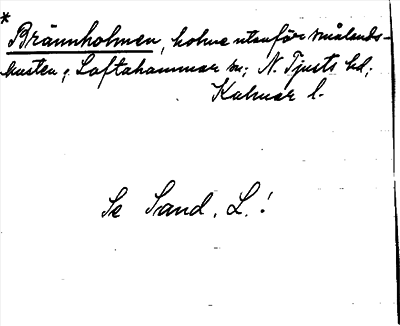 *
Brännholmen, holme utanför Smålands-
kusten; Loftahammar sn; N. Tjusts hd;
Kalmar l.
Se Sand, L.!